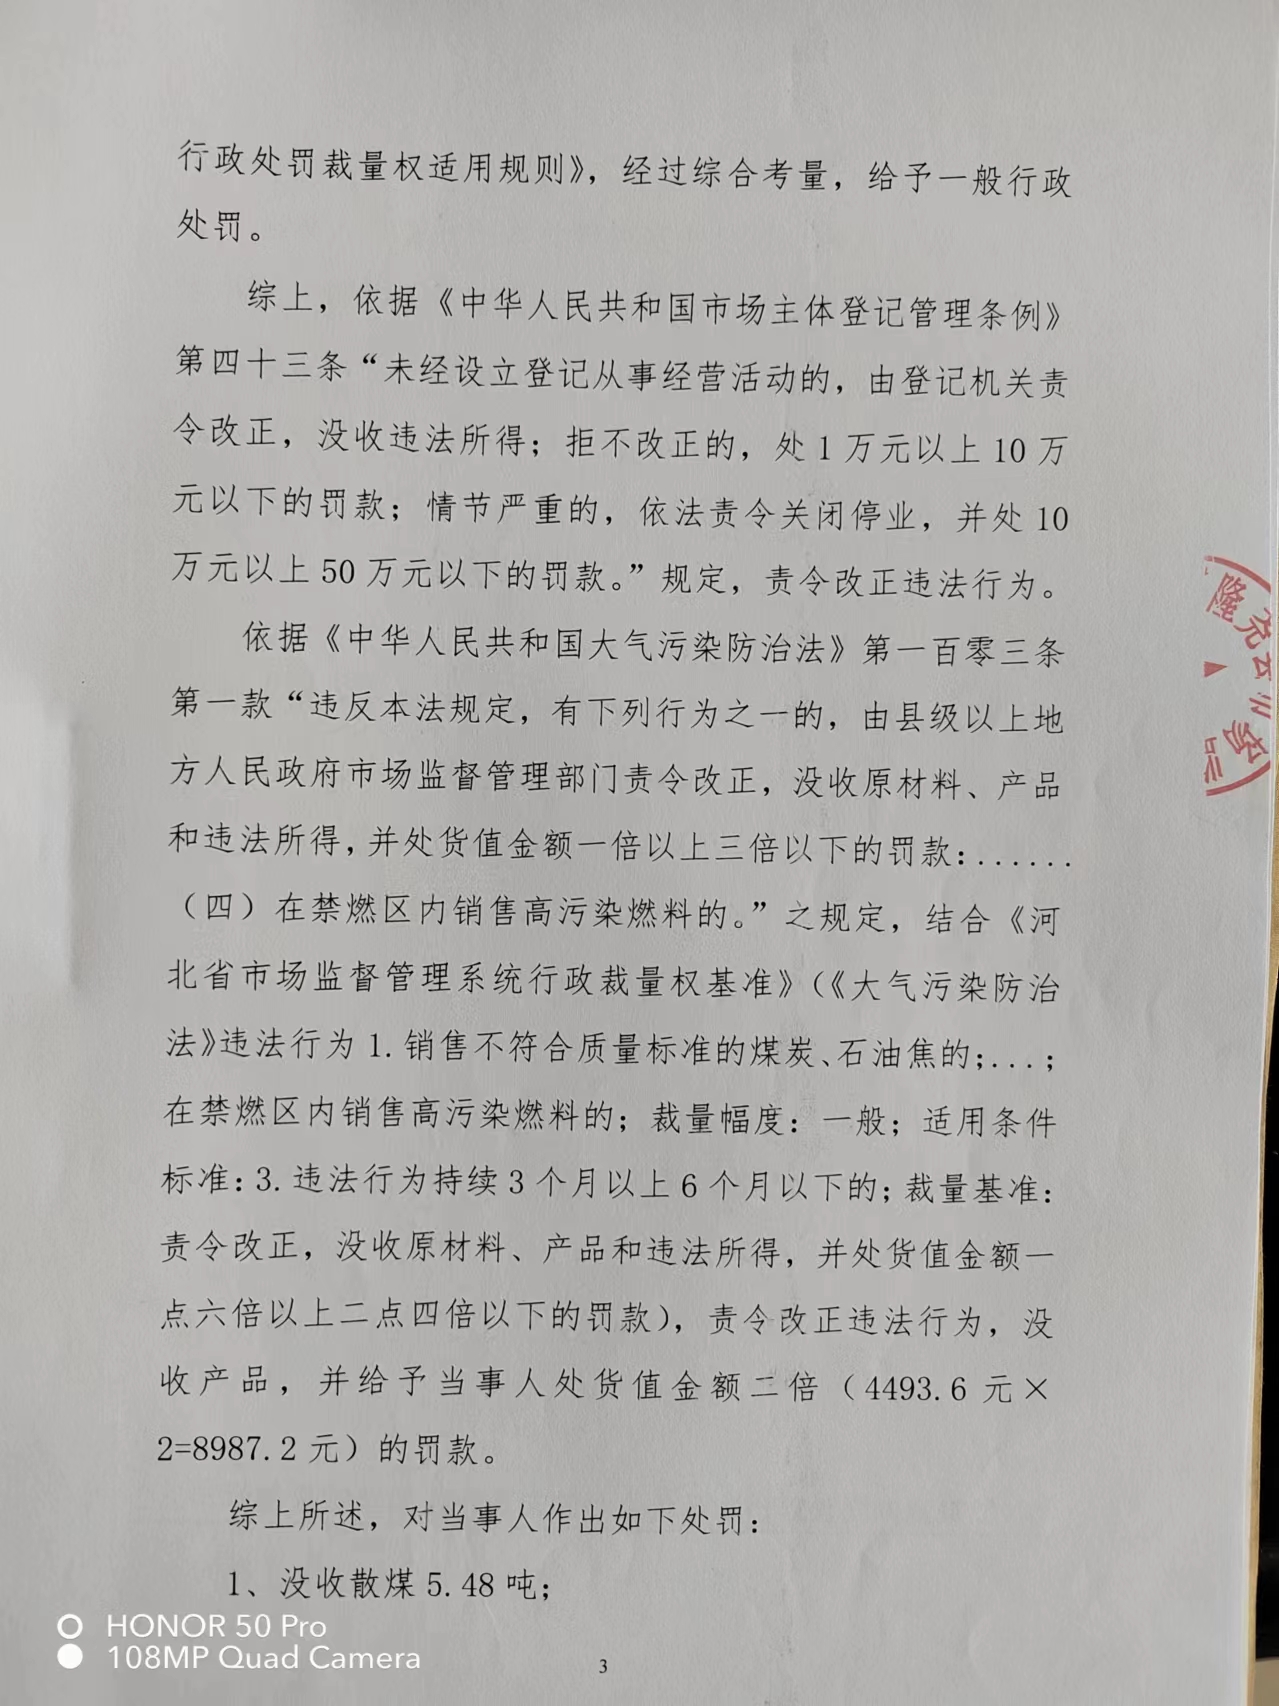 行政处罚裁量权适用规则》，经过综合考量，给予一般行政
处罚。
综上，依据《中华人民共和国市场主体登记管理条例》
第四十三条“未经设立登记从事经营活动的，由登记机关责
令改正，没收违法所得；拒不改正的，处1万元以上10万
元以下的罚款；情节严重的，依法责令关闭停业，并处10
万元以上50万元以下的罚款。”规定，责令改正违法行为。
依据《中华人民共和国大气污染防治法》第一百零三条
第一款“违反本法规定，有下列行为之一的，由县级以上地
方人民政府市场监督管理部门责令改正，没收原材料、产品
和违法所得，并处货值金额一倍以上三倍以下的罚款：......
（四）在禁燃区内销售高污染燃料的。”之规定，结合《河
北省市场监督管理系统行政裁量权基准》（《大气污染防治
法》违法行为1.销售不符合质量标准的煤炭、石油焦的；...；
在禁燃区内销售高污染燃料的；裁量幅度：一般；适用条件
标准：3.违法行为持续3个月以上6个月以下的；裁量基准：
责令改正，没收原材料、产品和违法所得，并处货值金额一
点六倍以上二点四倍以下的罚款），责令改正违法行为，没
收产品，并给予当事人处货值金额二倍（4493.6元×
2=8987.2元）的罚款。
综上所述，对当事人作出如下处罚：
1、没收散煤5.48吨；
3
隆尧
HONOR 50 Pro
108MP Quad Camera